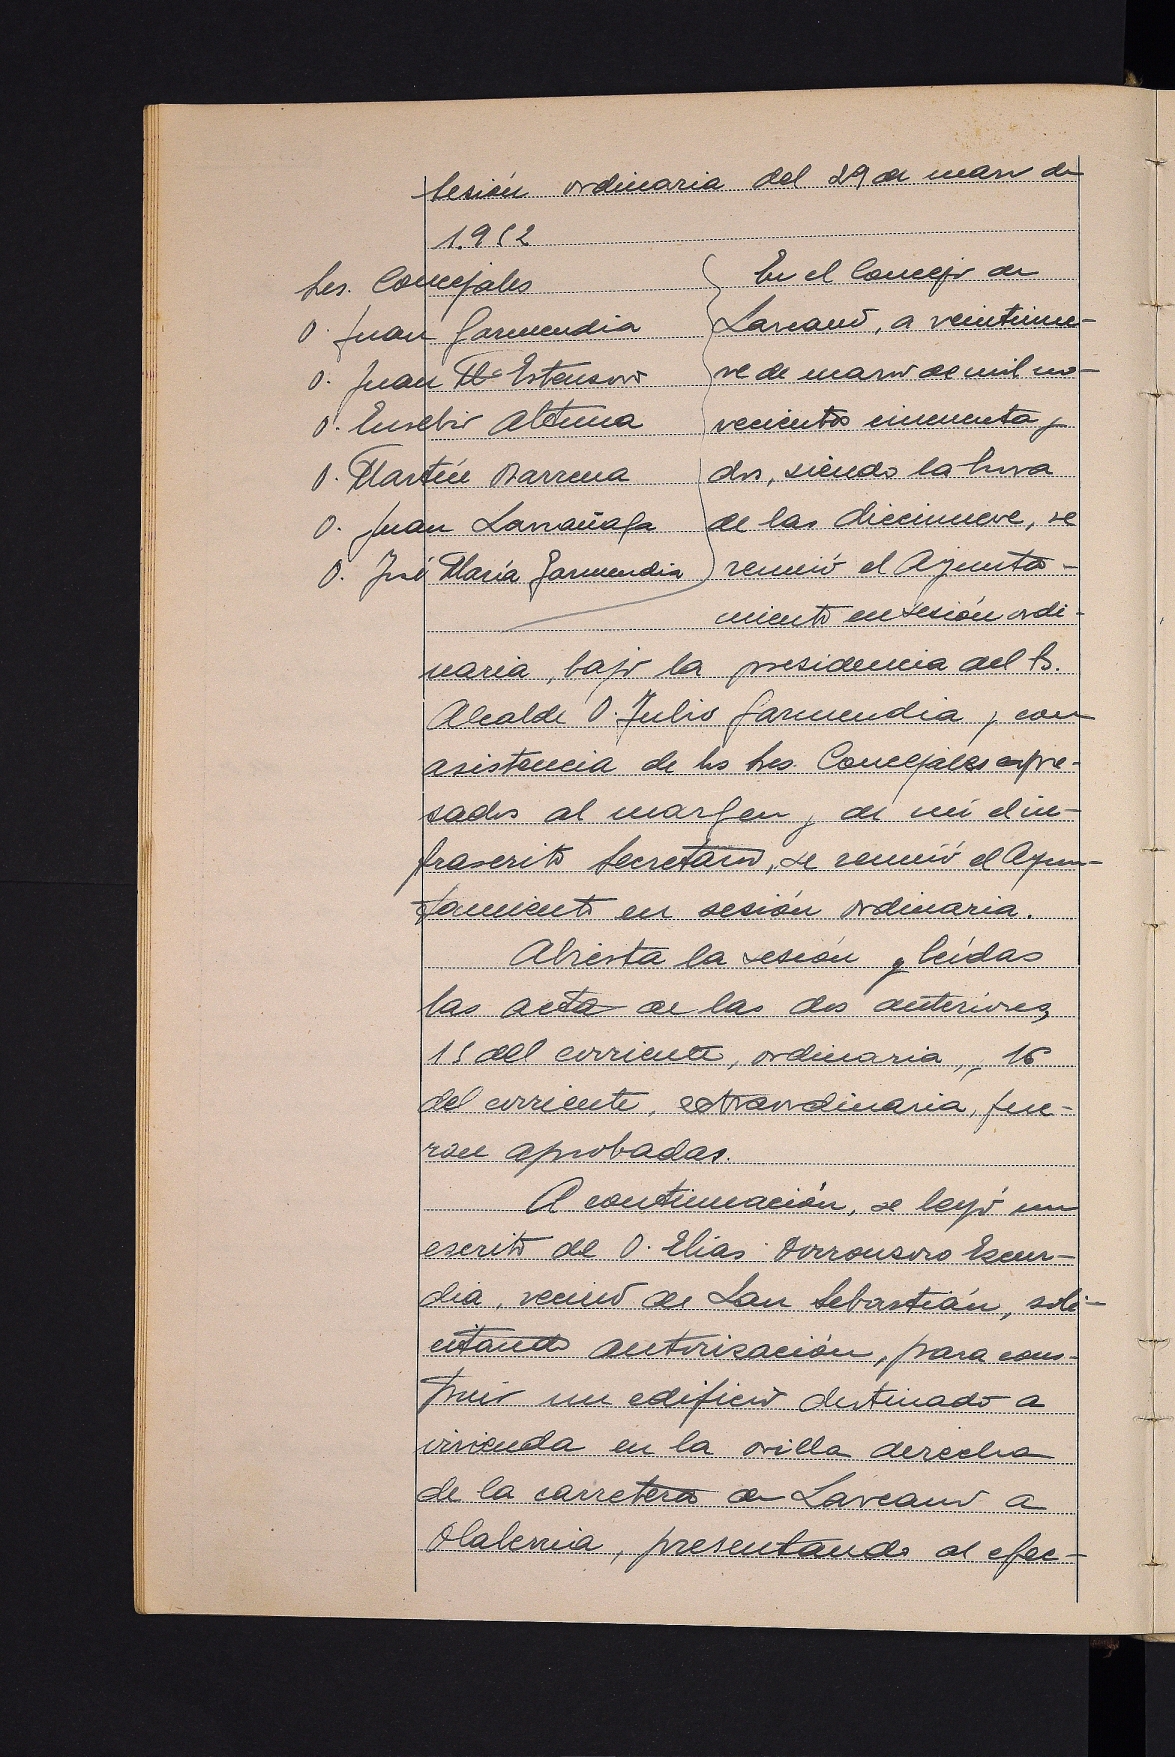 Sesión ordinaria del 29 de marzo de
1.952
Sres. Concejales
D. Juan Garmendia
D. Juan Mª Estensoro
D. Eusebio Altuna
D. Martín Barrena
D. Juan Larrañaga
D. José María Garmendia
En el Concejo de
Lazcano, a veintinue-
ve de marzo de mil no-
vecientos cincuenta y
dos, siendo la hora
de las diecinueve, se
reunió el Ayunta-
miento en sesión ordi-
naria, bajo la presidencia del Sr.
Alcalde D. Julio Garmendia y con
asistencia de los Sres. Concejales expre-
sados al margen y de mí el in-
frascrito Secretario, se reunió el Ayun-
tamiento en sesión ordinaria.
Abierta la sesión y leídas
las acta de las dos anteriores,
15 del corriente, ordinaria, y 16
del corriente, extraordinaria, fue-
ron aprobadas.
A continuación, se leyó un
escrito de D. Elías Dorronsoro Escur-
dia, vecino de San Sebastián, soli-
citando autorización, para cons-
truir un edificio destinado a
vivienda en la orilla derecha
de la carretera de Lazcano a
Olaberria, presentando al efec-